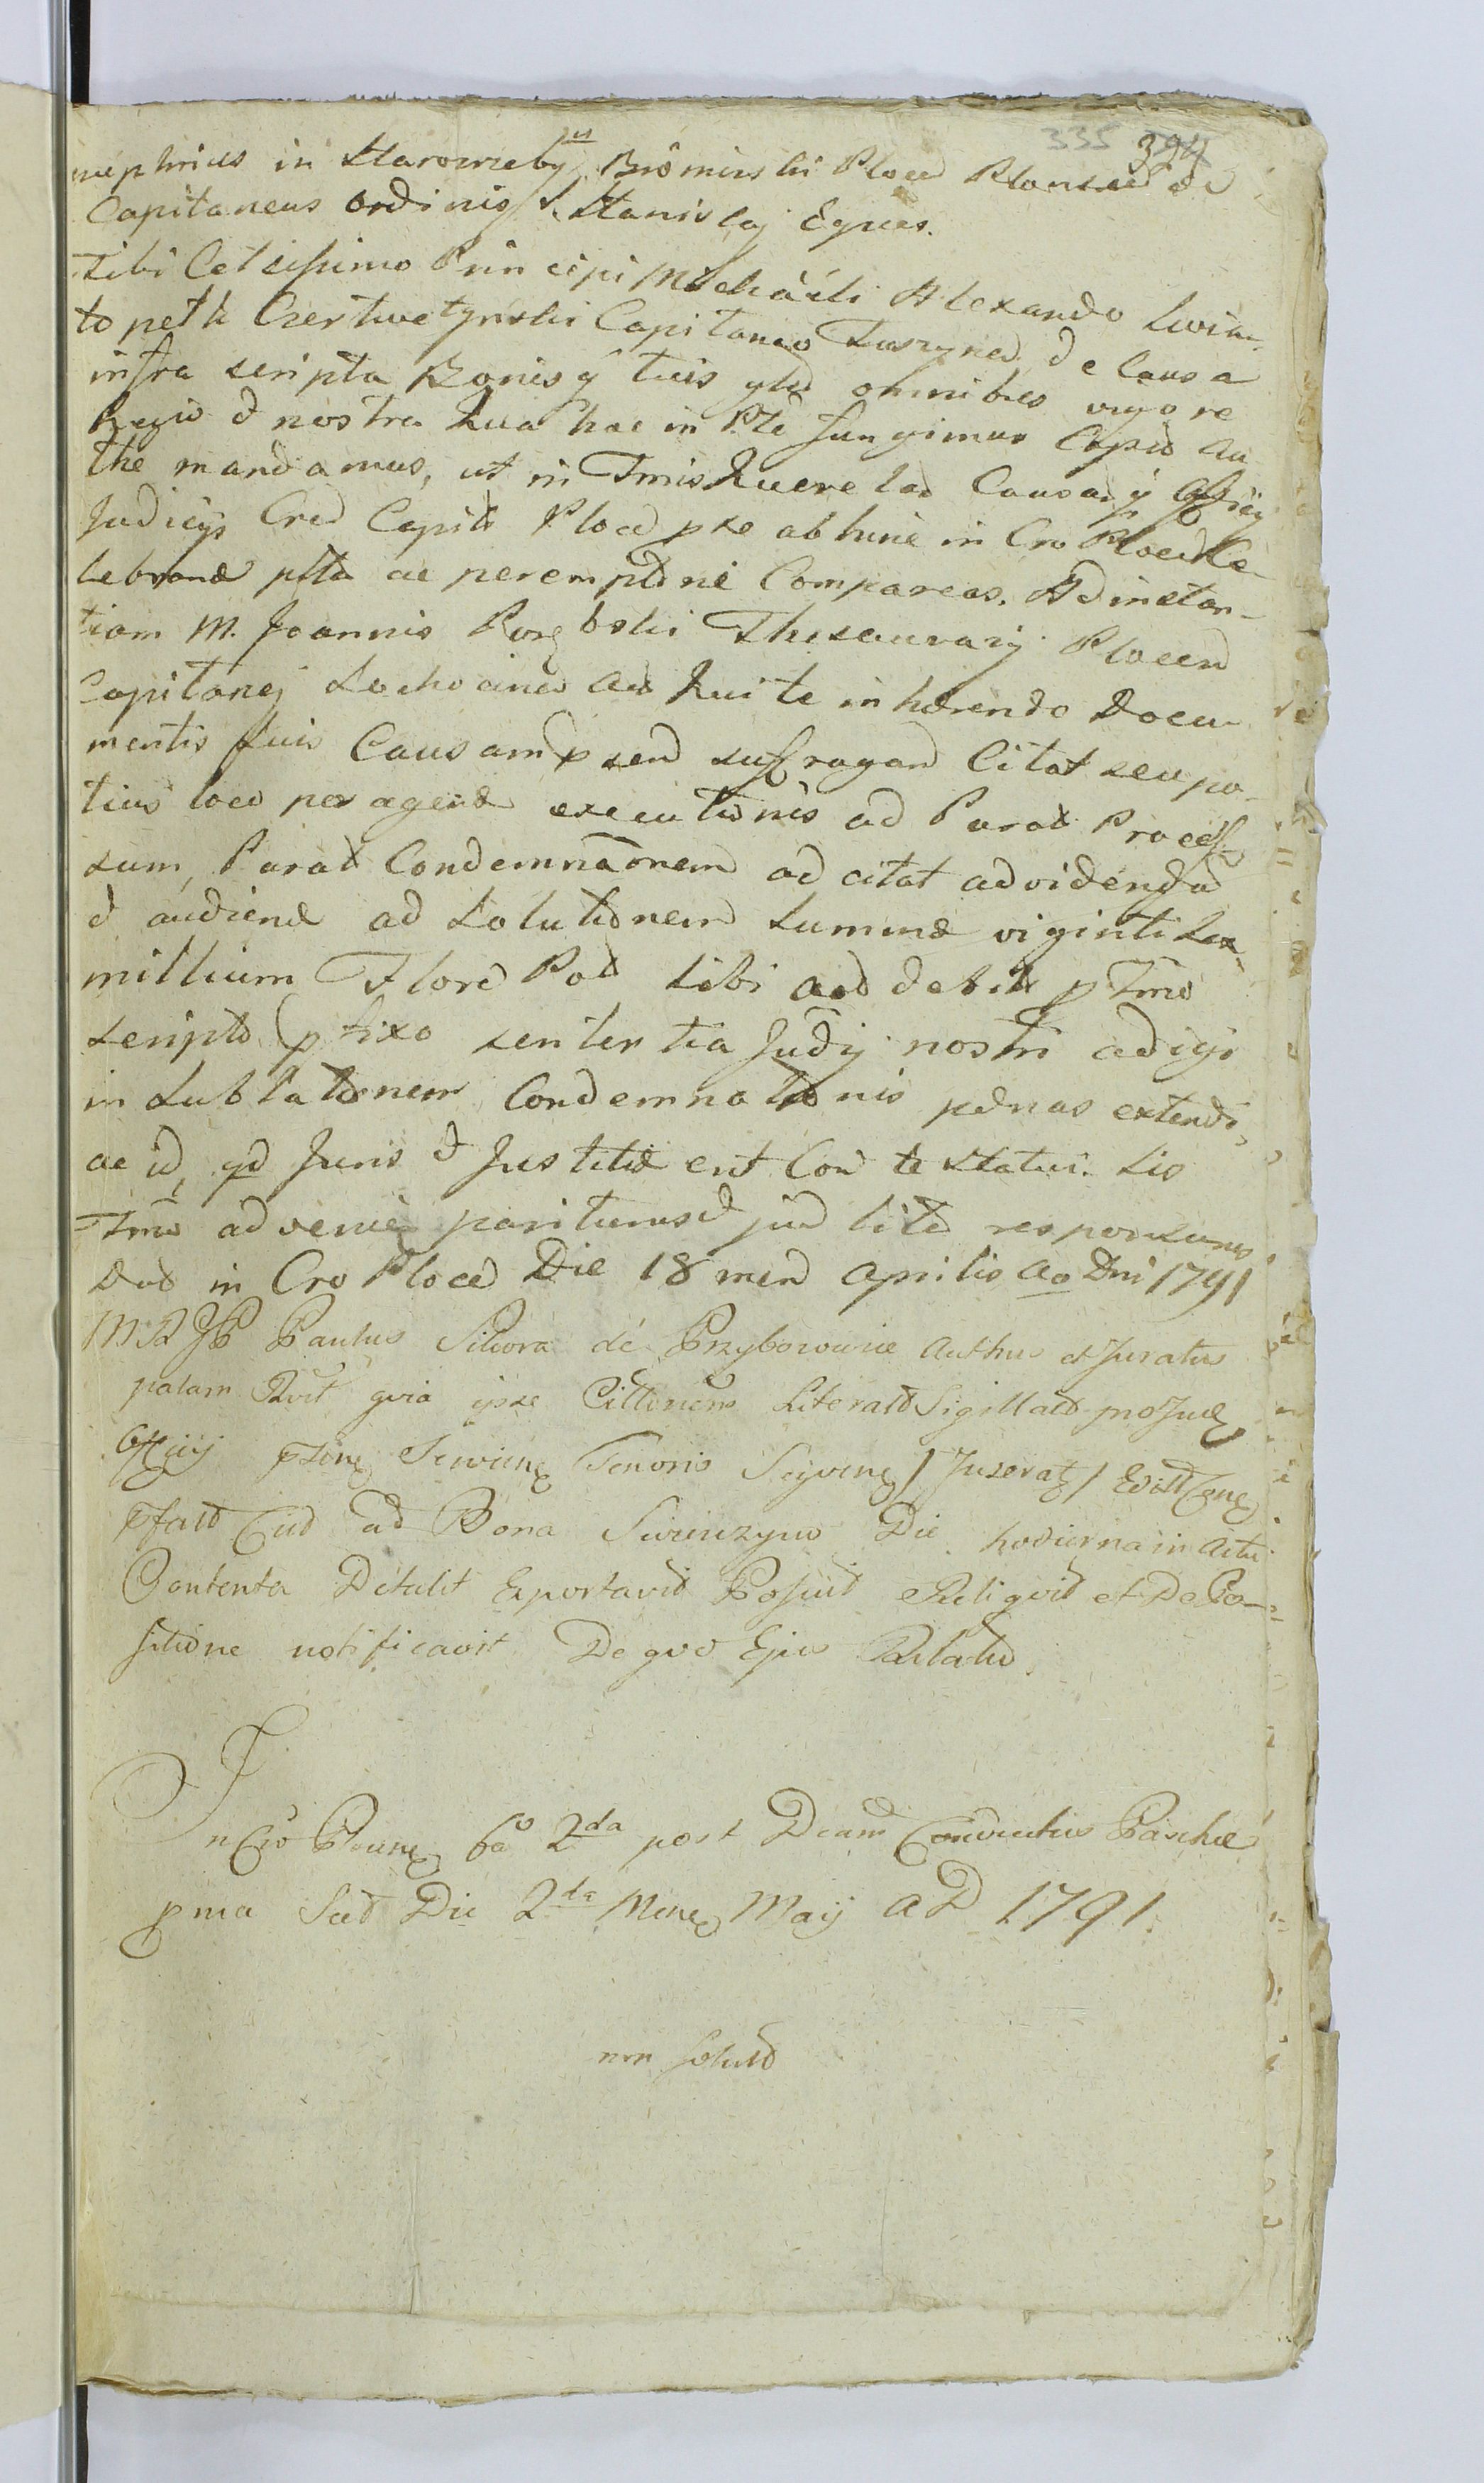 335 394
nuphrius in Starorzeby Bromirski Ploced Plonscd &
Capitaneus Ordinis S. Stanislaj Eques.
Tibi Celsissimo Principi Michaeli Alexandro Swia-
topelk Czertwetynski Capitaneo Duszyned de Causa
infra scripta Bonisq tuis gld omnibus vigore
Regio & nostra Qua hac in Pte fungimur Capid Au
the mandamus, ut in Tmis Querelad Causaq Officij
Judicijs Cred Capits Ploced pse abhinc in Cro Ploced Ce-
lebrand pltd ac peremptd ne Compareas. Ad instan-
tiam M. Joannis Porębski Thesaurarij Plocend
Capitanej Sochocined Acd Qui te inhærendo Docu-
mentis suis Causamq send suffragand Citat seu po-
tius loco peragendæ executionis ad Parat Proces
sum, Parat Condemnãonem ad citat ad videndd
& audiend ad Solutionem Summæ viginti sex
millium Flord Pol sibi Acd debit p Tmo
scripto pfixo sententia Judij nostri adigi
in Sublationem Condemnationis pænas extendi,
ac id, qd Juris & Justitiæ erit Con te statui. Sis
Tmo adveniē pariturusd jud litd responsurus
Dat in Cro Ploced Die 18 mend Aprilis Ao Dni 1791
M R JP Paulus Sikora de Przyborowie Authus et Juratus
palam Rvit quia ipse Cittionem Literatd Sigillatd pro Jud
Officij Tenoris / Juserat /
ad Bona Swierczyno Die hodierna in Actu
Contenta Detulit Exportavit Posuit Reliqvit et De Po-
sitione notificavit De qvo Ejus Relatio
In Cro fa 2da post Dcam Conductus Paschæ
pma Scd Die 2da Mens Maij A D 1791.
non solutd